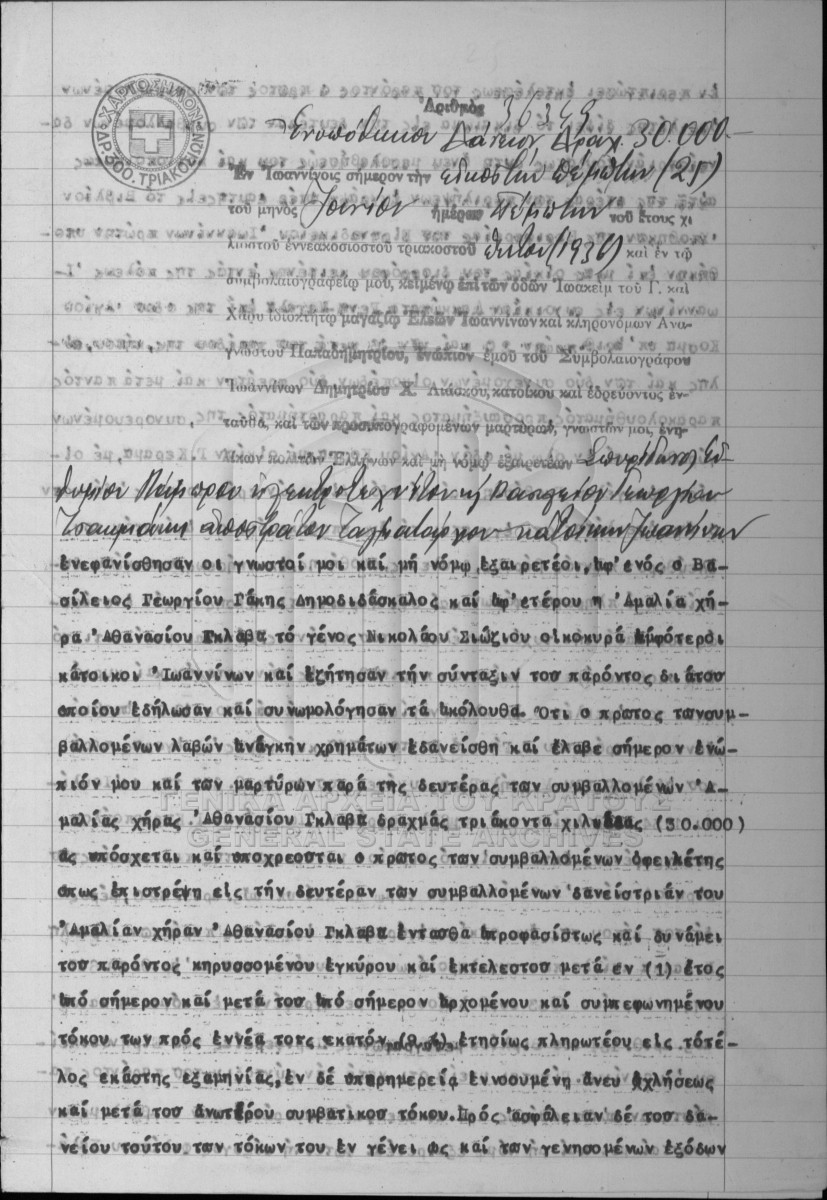 ΧΑΡΤΟΣΗΜΟΝ
ΔΡ. 300. ΤΡΙΑΚΟΣΙΩΝ
Ἀριθμός 36349
Ἐνυπόθηκον Δάνειον Δραχ. 30.000
Ἐν Ἰωαννίνοις σήμερον τὴν εἰκοστὴν πέμπτην (25)
τοῦ μηνὸς Ἰουνίου ἡμέραν Πέμπτην τοῦ ἔτους χι
λιοστοῦ ἐννεακοσιοστοῦ τριακοστοῦ ἕκτου (1936) καὶ ἐν τῷ
συμβολαιογραφείῳ μου, κειμένῳ ἐπὶ τῶν ὁδῶν Ἰωακεὶμ τοῦ Γ. καὶ
ἰδιοκτήτῳ μαγαζίῳ Ἐλεῶν Ἰωαννίνων καὶ κληρονόμων Ἀνα-
γνώστου Παπαδημητρίου, ἐνώπιον ἐμοῦ τοῦ Συμβολαιογράφου
Ἰωαννίνων Δημητρίου Χ. Λιάσκου, κατοίκου καὶ ἑδρεύοντος ἐν-
ταῦθα, καὶ τῶν προσυπογραφομένων μαρτύρων, γνωστῶν μοι, ἐνη-
λίκων πολιτῶν Ἑλλήνων καὶ μὴ νόμῳ ἐξαιρετέων Σπυρίδωνος Εὐ-
θυμίου ἠλεκτροτεχνίτου καὶ Γεωργίου
ἀποστράτου Ταγματάρχου κατοίκων Ἰωαννίνων
ἐνεφανίσθησαν οι γνωστοί μοι καί μή νόμῳ ἐξαιρετέοι, ἀφ' ενός ο Βα-
σίλειος Γεωργίου Γάκης Δημοδιδάσκαλος καί ἀφ' ετέρου η 'Αμαλία χή-
ρα 'Αθανασίου Γκλαβα τό γένος Νικολάου Σιώζιου οἰκοκυρά ἀμφότεροι
κάτοικοι 'Ιωαννίνων καί ἐζήτησαν τήν σύνταξιν του παρόντος διάτου
οποίου ἐδήλωσαν καί συνωμολόγησαν τά ἀκόλουθα. Ότι ο πρωτος τωνσυμ-
βαλλομένων λαβών ἀνάγκην χρημάτων ἐδανείσθη καί ἔλαβε σήμερον ἐνώ-
πιόν μου καί των μαρτύρων παρά της δευτέρας των συμβαλλομένων 'Α-
μαλίας χήρας 'Αθανασίου Γκλαβα δραχμάς τριάκοντα χιλιάδας (30.000)
ἅς υπόσχεται καί υποχρεουται ο πρωτος των συμβαλλομένων ὀφειλέτης
οπως ἐπιστρέψη εἰς τήν δευτέραν των συμβαλλομένων δανείστριάν του
'Αμαλίαν χήραν 'Αθανασίου Γκλαβα ἐνταυθα ἀπροφασίστως καί δυνάμει
του παρόντος κηρυσσομένου ἐγκύρου καί ἐκτελεστου μετά εν (1) ἔτος
ἀπό σήμερον καί μετά του ἀπό σήμερον ἀρχομένου καί συμπεφωνημένου
τόκου των πρός ἐννέα τοις εκατόν (9 %) ἐτησίως πληρωτέου εἰς τότέ-
λος εκάστης εξαμηνίας, ἐν δέ υπερημερείᾳ ἐννοουμένη ἄνευ ὀχλήσεως
καί μετά του ἀνωτέρου συμβατικου τόκου. Πρός ἀσφάλειαν δέ του δα-
νείου τούτου των τόκων του ἐν γένει ως καί των γενησομένων ἐξόδων
ΓΕΝΙΚΑ ΑΡΧΕΙΑ ΤΟΥ ΚΡΑΤΟΥΣ
GENERAL STATE ARCHIVES